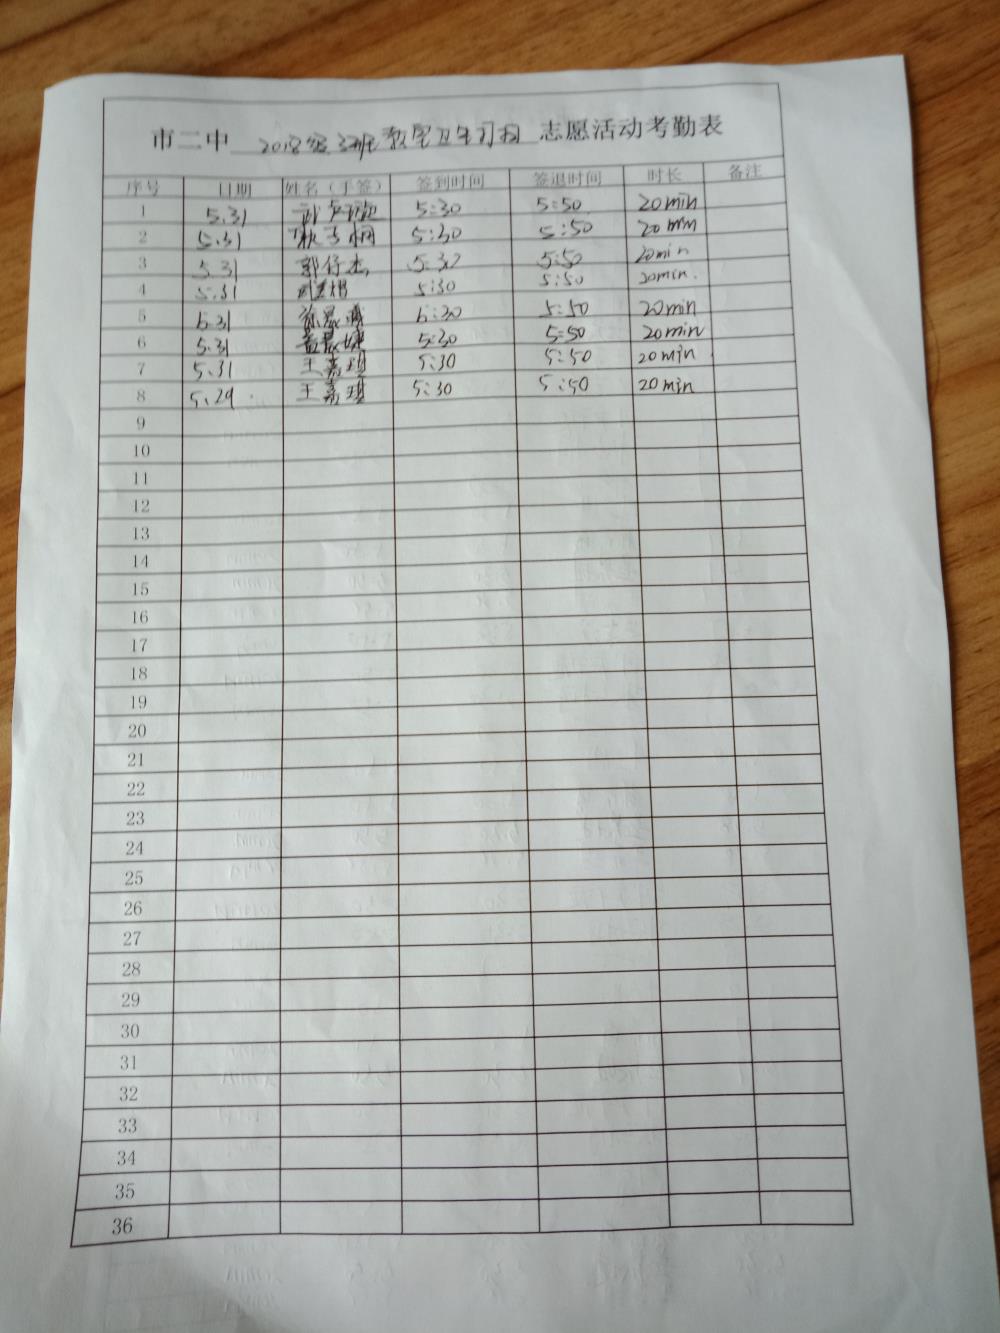 市二中 2018级3班教室卫生习扫 志愿活动考勤表
序号 日期 姓名(手签) 签到时间 签退时间 时长 备注
1 5.31 5:30 5:50 20min
2 5.31 5:30 5:50 20min
3 5.31 郭仔杰 5:30 5:50 20min
4 5.31 5:30 5:50 20min.
5 5.31 5:30 5:50 20min
6 5.31 5:30 5:50 20min
7 5.31 王嘉琪 5:30 5:50 20min
8 5.29 王嘉琪 5:30 5:50 20min
9
10
11
12
13
14
15
16
17
18
19
20
21
22
23
24
25
26
27
28
29
30
31
32
33
34
35
36